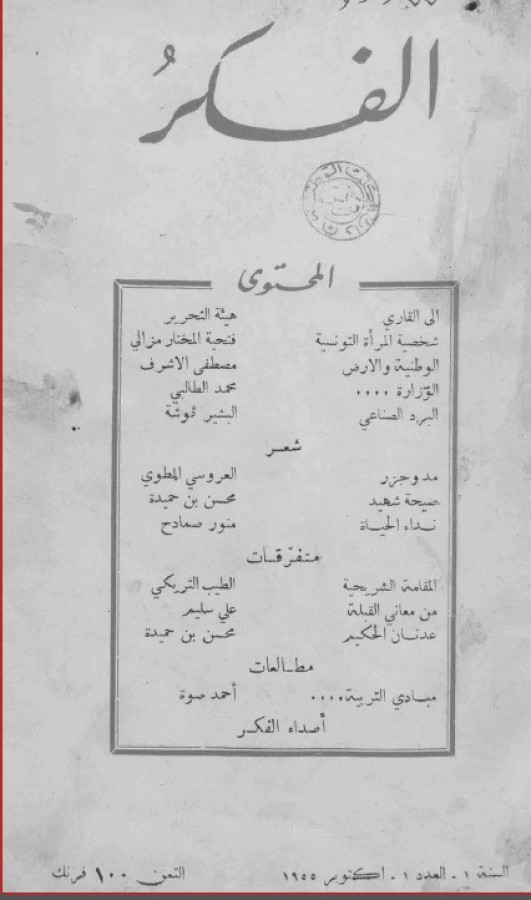 الفكرُ
المحتوى
الى القاري هيئة التحرير
شخصية المرأة التونسية فتحية المختار مزالي
الوطنية والارض مصطفى الاشرف
الوزارة .... محمد الطالبي
البرد الصناعي البشير
شعر
مد وجزر العروسي المطوي
صيحة شهيد محسن بن حميدة
نداء الحياة منور صمادح
متفرّقات
المقامة الطيب التريكي
من معاني القبلة علي سليم
عدنان الحكيم محسن بن حميدة
مطالعات
مبادي التربية.... أحمد صوة
أصداء الفكر
السنة ١ - العدد ١ - اكتوبر ١٩٥٥ الثمن ١٠٠ فرنك